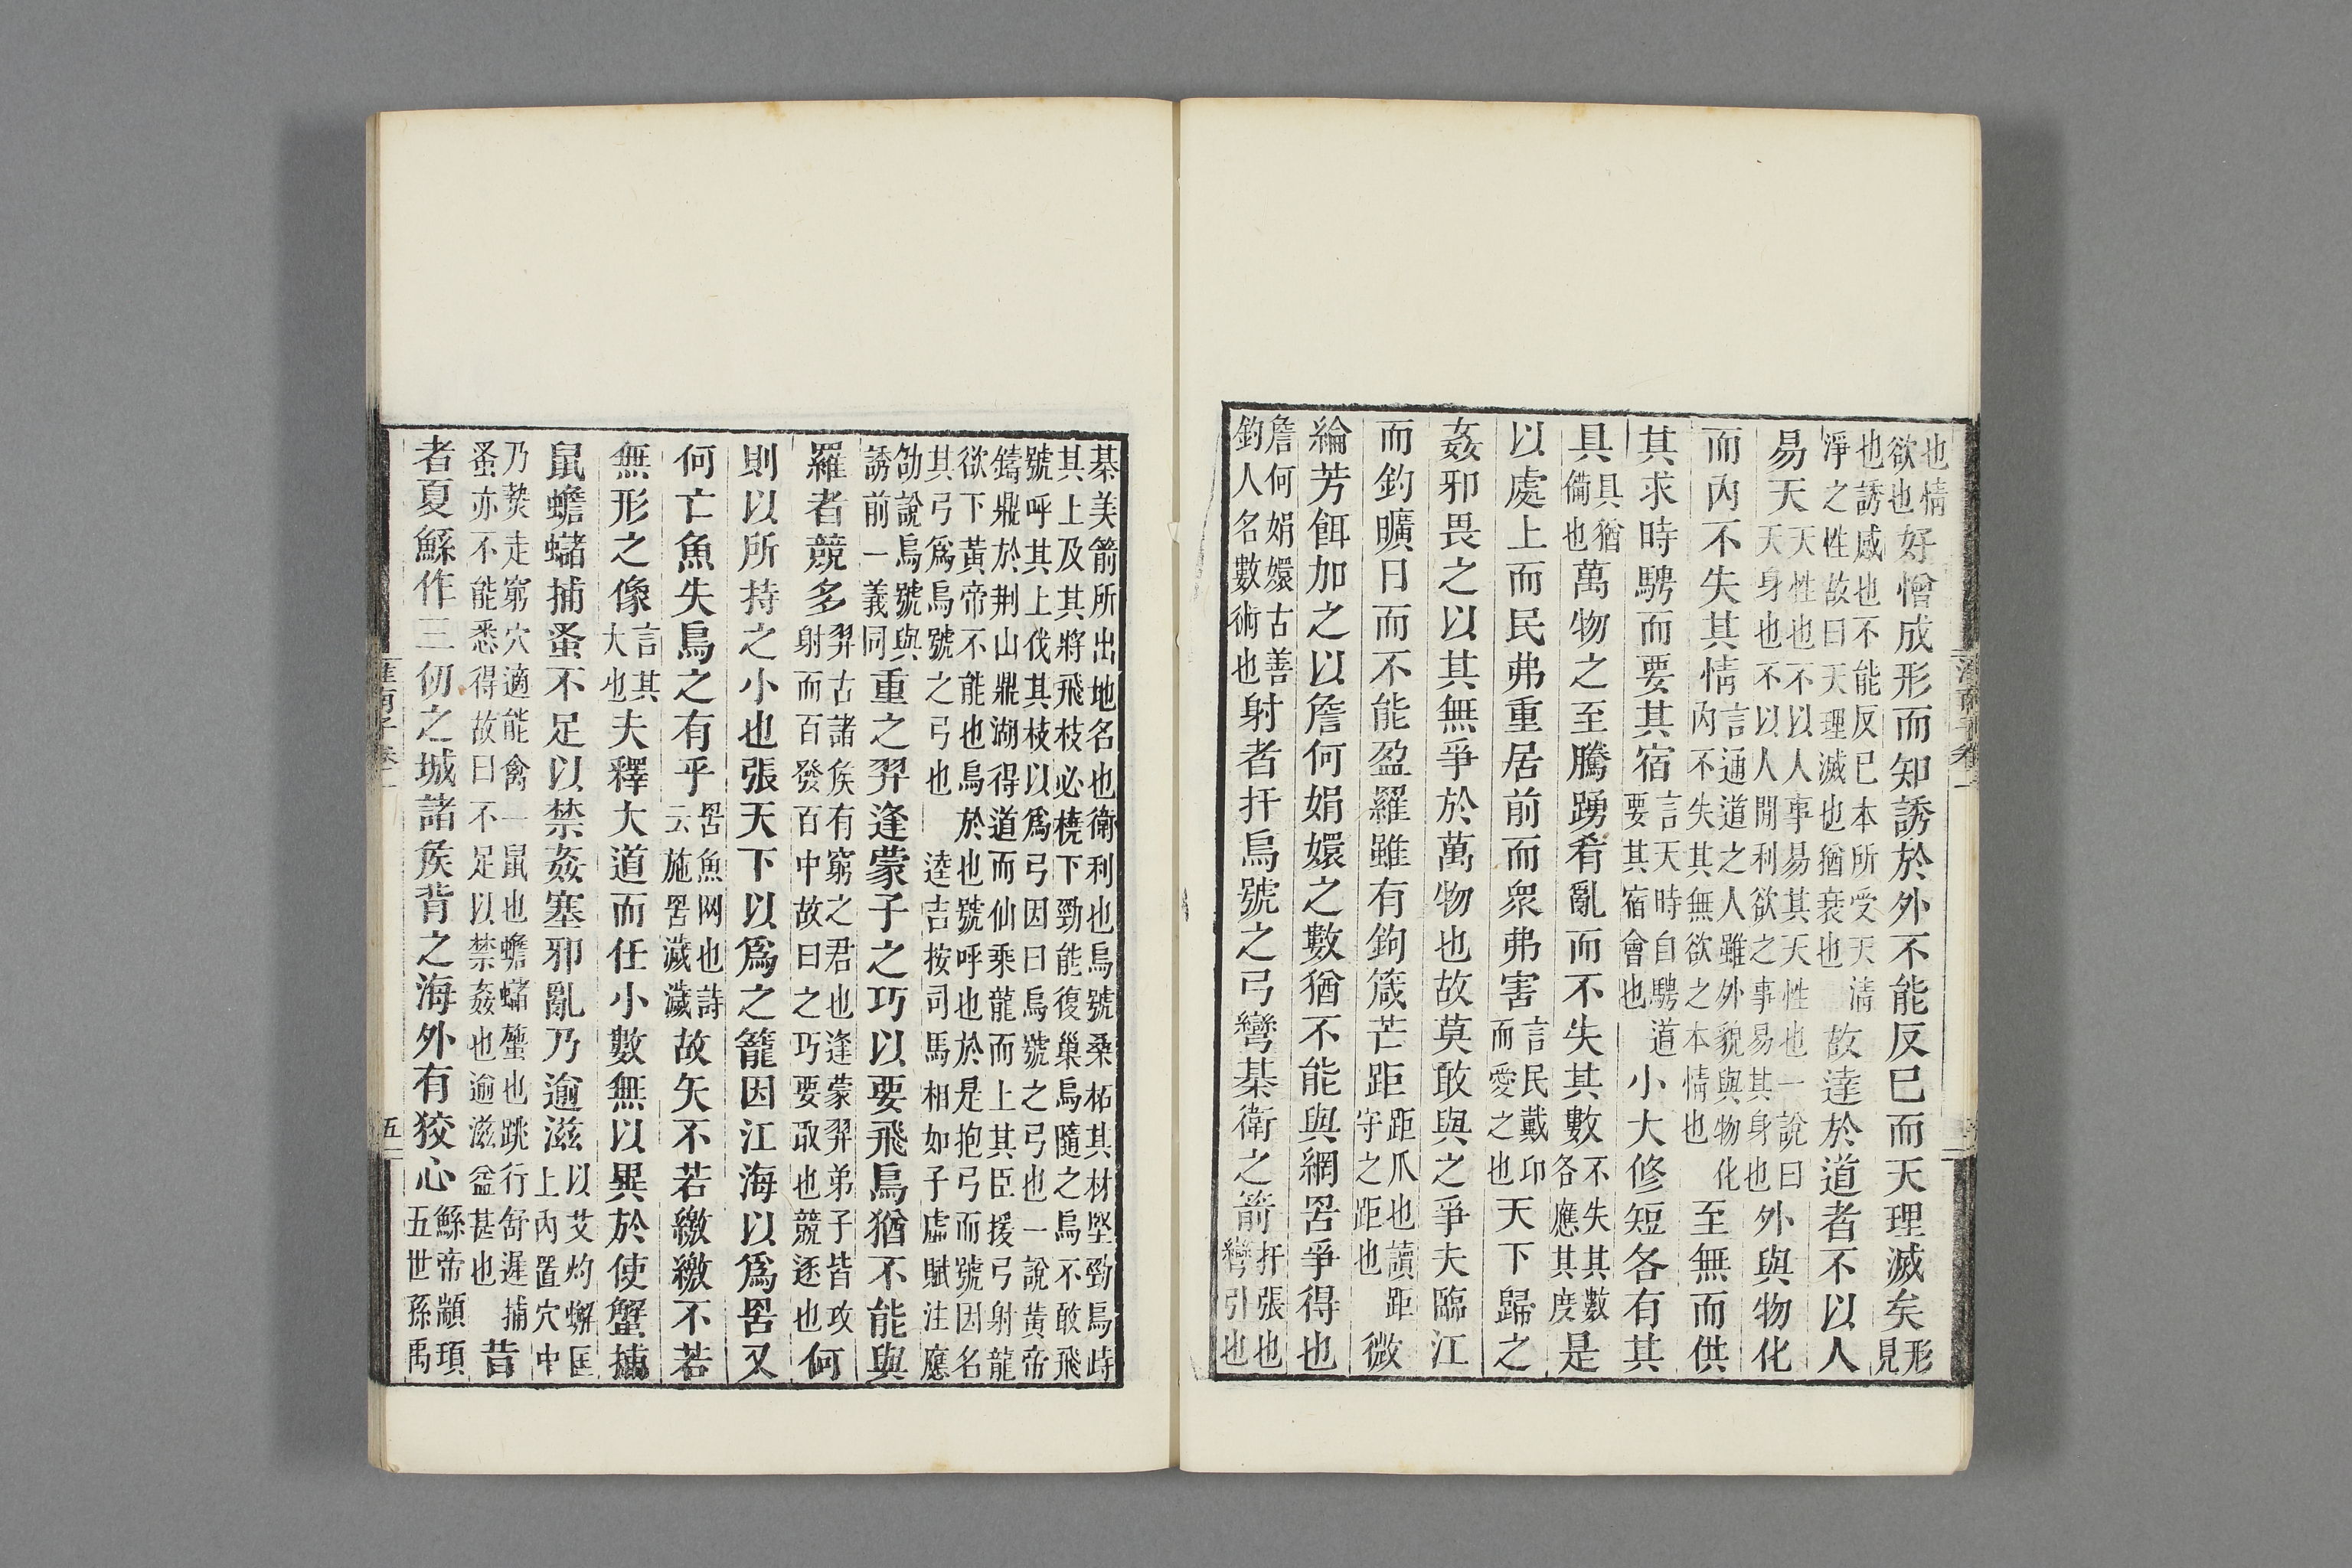 也情欲也好憎成形而知誘於外不能反已而天理滅矣形見
也誘感也不能反已本所受天清淨之性故曰天理滅也猶衰也故達於道者不以人
易天天性也不以人事易其天性也一說曰天身也不以人閒利欲之事易其身也外與物化
而內不失其情言通道之人雖外貌與物化內不失其無欲之本情也至無而供
其求時騁而要其宿言天時自騁道要其宿會也小大修短各有其
具具猶備也萬物之至騰踴肴亂而不失其數不失其數各應其度是
以處上而民弗重居前而衆弗害言民戴卬而愛之也天下歸之
姦邪畏之以其無爭於萬物也故莫敢與之爭夫臨江
而釣曠日而不能盈羅雖有鉤箴芒距距爪也讀距守之距也微
綸芳餌加之以詹何娟嬛之數猶不能與網罟爭得也
詹何娟嬛古善釣人名數術也射者扞烏號之弓彎棊衛之箭扞張也彎引也
棊美箭所出地名也衛利也烏號桑柘其材堅勁烏峙其上及其將飛枝必橈下勁能復巢烏隨之烏不敢飛
號呼其上伐其枝以爲弓因曰烏號之弓也一說黃帝鑄鼎於荆山鼎湖得道而仙乘龍而上其臣援弓射龍
欲下黃帝不能也烏於也號呼也於是抱弓而號因名其弓爲烏號之弓也 逵吉按司馬相如子虛賦注應
劭說烏號與誘前一義同重之羿逢蒙子之巧以要飛鳥猶不能與
羅者競多羿古諸矦有窮之君也逢蒙羿弟子皆攻射而百發百中故曰之巧要取也競逐也何
則以所持之小也張天下以爲之籠因江海以爲罟又
何亡魚失鳥之有乎罟魚网也詩云施罟濊濊故矢不若繳繳不若
無形之像言其大也夫釋大道而任小數無以異於使蟹捕
鼠蟾蠩捕蚤不足以禁姦塞邪亂乃逾滋以艾灼蠏匡上內置穴中
乃熱走窮穴適能禽一鼠也蟾蠩蟹也跳行舒遲捕蚤亦不能悉得故曰不足以禁姦也逾滋益甚也昔
者夏鯀作三仞之城諸矦背之海外有狡心鯀帝顓頊五世孫禹
淮南子卷一
五